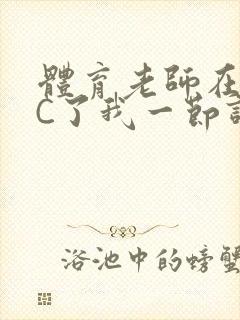 體育老師在
C了我一節
浴池中的螃蟹